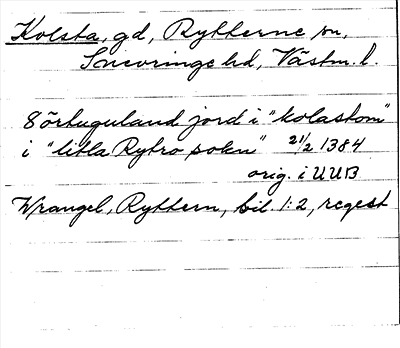 Kolsta, gd, Rytterne sn,
Snevringe hd, Västm. l.
8 örtuguland jord i "kolastom"
i "litla Rytro sokn" 21/2 1384
orig. i UUB
Wrangel, Ryttern, bil. 1:2, regest